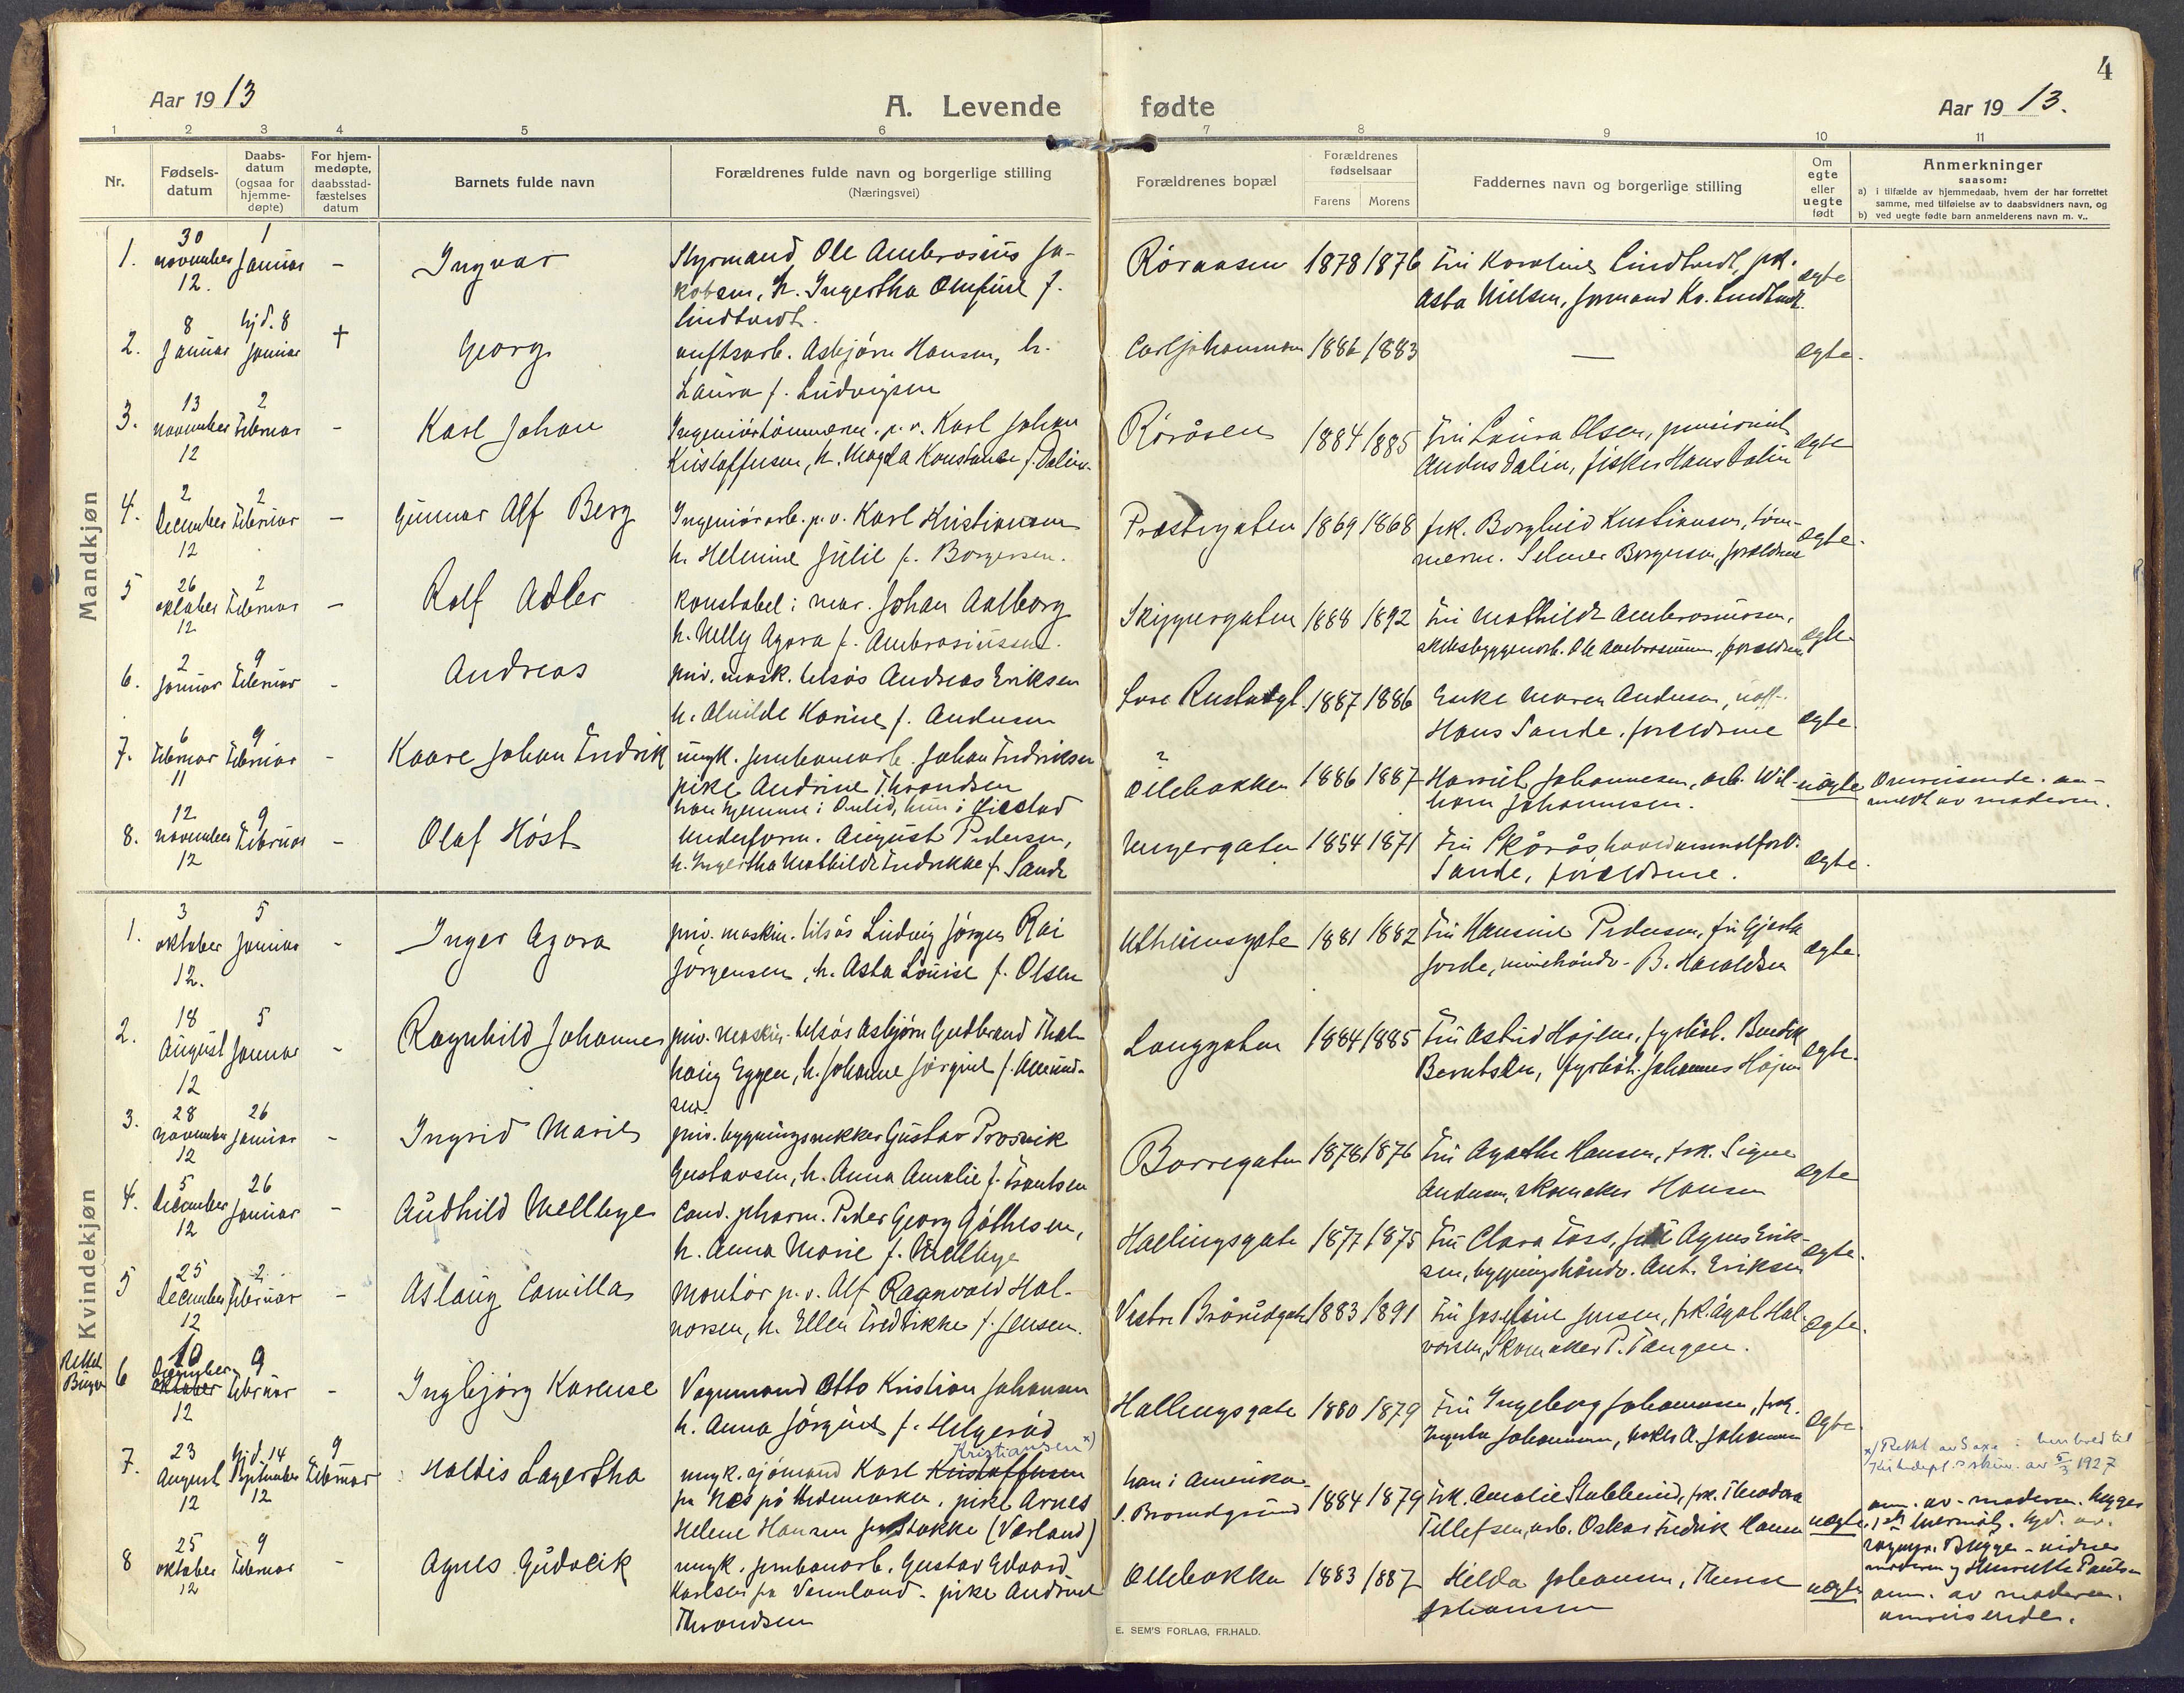 4
Aar 1913
A. Levende fødte
Aar 1913.
1 2 3 4 5 6 7 8 9 10 11
Nr.
Fødsels-
datum
Daabs-
datum
(ogsaa for
hjemme-
døpte)
For hjem-
medøpte,
daabsstad-
fæstelses
datum
Barnets fulde navn
Forældrenes fulde navn og borgerlige stilling
(Næringsvei)
Forældrenes bopæl
Forældrenes
fødselsaar
Farens Morens
Faddernes navn og borgerlige stilling
Om
egte
eller
uegte
født
Anmerkninger
saasom:
a) i tilfælde av hjemmedaab, hvem der har forrettet
samme, med tilføielse av to daabsvidners navn, og
b) ved uegte fødte barn anmelderens navn m. v..
Mandkjøn
1. 30 november 12. 1 Januar - Ingvar
Styrmand Ole Ambrosius Ja-
kobsen, h. Ingertha Olufine f.
Lindtvedt.
Røraasen 1878 1876
Fru Karoline Lindtvedt, frk.
Asta Nielsen, formand Kr. Lindtvedt.
egte
2. 8 Januar hjd. 8 Januar † Georg
Asbjørn Hansen, h.
Laura f. Ludvigsen
Carljohansvern 1886 1883 — egte.
3. 13 november 12 2 Februar - Karl Johan
Ingeniørtømmerm. p. v. Karl Johan
Kristoffersen, h. Magda Konstanse f. Dalin.
Røråsen 1884 1885
Fru Laura Olsen, pensionist
Anders Dalin, fisker Hans Dalin
egte
4. 2 December 12 2 Februar - Gunnar Alf Berg
Ingeniørarb. p. v. Karl Kristiansen
h. Helmine Julie f. Borgersen.
Prestegaten 1869 1868
frk. Borghild Kristiansen, tøm-
merm. Selmer Borgersen, forældrene
egte.
5 26 oktober 12 2 Februar - Rolf Adler
Konstabel i mar. Johan Aalborg
h. Nelly Agora f. Ambrosiussen.
Skippergaten 1888 1892
Fru Mathilde Ambrosiussen,
skibsbyggerarb. Ole Ambrosiussen, forældrene
egte
6. 2 Januar 9 Februar - Andreas
priv. mask. tilsås Andreas Eriksen
h. Alvilde Karine f. Andersen
1887 1886
Enke Maren Andersen, uoff.
Hans Sande, forældrene
egte
7. 6 Februar 11 9 Februar - Kaare Johan Fredrik
ungk. jernbanearb. Johan Fredriksen
pike Andrine Throndsen
Ollebakken 1886 1887
Johannesen, arb. Wil-
helm Johannesen.
uegte
Omreisende. an-
meldt av moderen.
8. 12 november 12 9 Februar - Olaf Høst
Underform. August Pedersen,
h. Ingertha Mathilde Fredrikke f. Sande
Ungergaten 1854 1871
Fru Skårås
Sande, forældrene.
egte.
Kvindekjøn
1. 3 oktober 12. 5 Januar - Inger Agora
priv. maskin. tilsås Ludvig Jørgen Rai
Jørgensen, h. Asta Louise f. Olsen
Uthtimsgate 1881 1882
Fru Hansine Pedersen, fru Gjerta
Jorde, minehåndv. B. Haraldsen
egte.
2. 18 August 12 5 Januar - Ragnhild Johanne
priv. maskin. tilsås Asbjørn Gudbrand Thal-
haug Eggen, h. Johanne Jørgine f. Amund-
sen.
Langgaten 1884 1885
Fru Astrid Højem, fyrbøt. Bendik
Berntsen, fyrbøt. Johannes Højem
egte.
3. 28 november 12 26 Januar - Ingrid Marie
priv. bygningssnekker Gustav Prosvik
Gustavsen, h. Anna Amalie f. Frantsen
Borregaten 1878 1876
Fru Agathe Hansen, frk. Signe
Andersen, skomaker Hansen
egte
4. 5 December 12 26 Januar - Audhild Mellbye
Cand. pharm. Peder Georg Gåthesen,
h. Anna Marie f. Mellbye
Hallingsgate 1877 1875
Fru Clara Foss, fru Agnes Erik-
sen, bygningshåndv. Ant. Eriksen
egte.
5 25 December 12 2 Februar - Aslaug Camilla
Montør p. v. Alf Ragnvald Hal-
vorsen, h. Ellen Fredrikke f. Jensen.
Vestre Brårudgate 1883 1891
Fru Josefine Jensen, frk. Ågot Hal-
vorsen, Skomaker P. Tangen.
egte.
Rettet
Bugge
6 10 December oktober 12 9 Februar - Ingbjørg Karense
Vognmand Otto Kristian Johansen
h. Anna Jørgine f. Helgerød
Hallingsgate 1880 1879
Fru Ingeborg Johansen, frk.
Ingerta Johannesen, A. Johansen
egte.
7. 23 August 12 hjd. 14 September 12 9 Februar Haldis Lagertha
Kristiansen x)
ungk. sjømand Karl Kristoffersen
fra Nes på Hedemarken, pike Arnes
Helene Hansen fra Stokke (Værland)
han i Amerika
S. Bromdgrund 1884 1879
Frk. Amalie Stubberud, frk. Theodora
Tellefsen, arb. Oskar Fredrik Hansen
uegte
x) Rettet av i henhold til
Kirkedept.s skriv. av 5/3 1927
anm. av moderen. begges
Bugge - vidner
moderen og Henriette
8 25 oktober 12 9 Februar - Agnes Gudveik
ungk. jernbanearb. Gustav Edvard
Karlsen fra Vermland - pike Andrine
Throndsen
Ollebakke 1883 1887
Hilda Johansen, Therese
Johansen
uegte
anm. av moderen.
omreisende.
E. SEM'S FORLAG, FR.HALD.